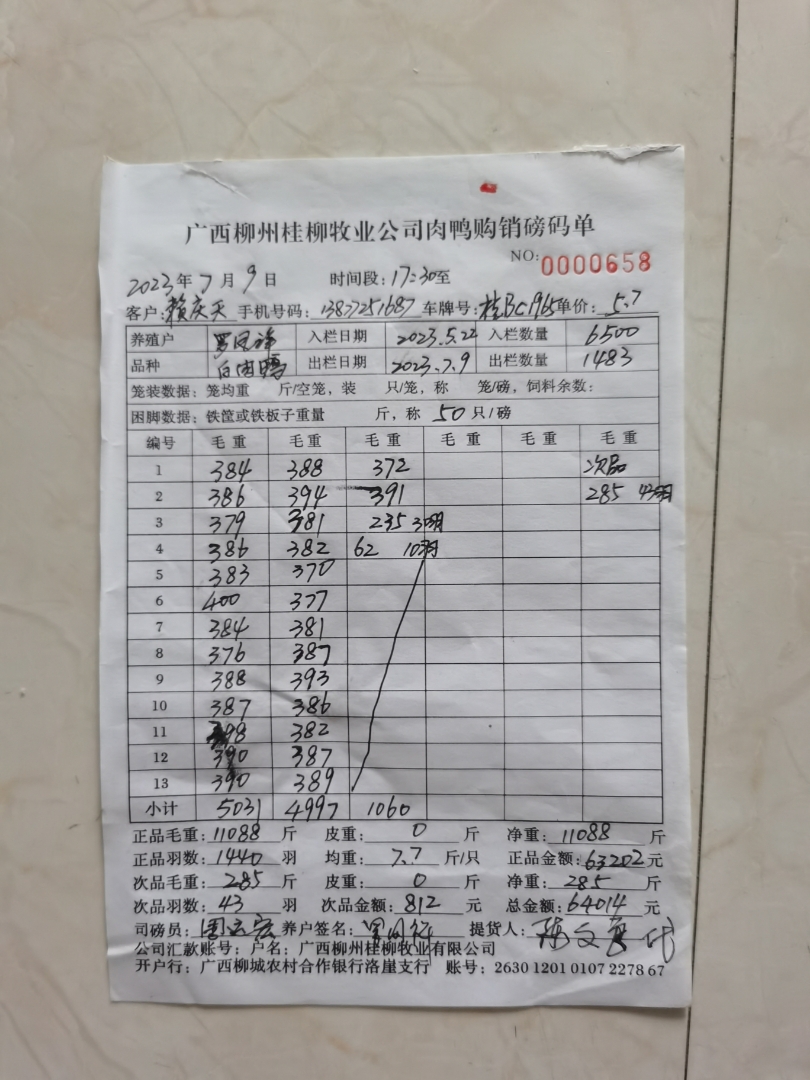 广西柳州桂柳牧业公司肉鸭购销磅码单
NO: 0000658
2023年7月9日 时间段: 17:30至
客户: 赖庆天 手机号码: 13877251687 车牌号: 桂BC1965 单价: 5.7
养殖户 入栏日期 2023.5.22 入栏数量 6500
品种 出栏日期 2023.7.9 出栏数量 1483
笼装数据: 笼均重 斤/空笼, 装 只/笼, 称 笼/磅, 饲料余数:
困脚数据: 铁筐或铁板子重量 斤, 称 50 只/磅
编号 毛重 毛重 毛重 毛重 毛重 毛重
1 384 388 372 次品
2 386 394 391 285 43羽
3 379 381 235 30羽
4 386 382 62 10羽
5 383 370
6 400 377
7 384 381
8 376 387
9 388 393
10 387 386
11 398 382
12 390 387
13 390 389
小计 5031 4997 1060
正品毛重: 11088 斤 皮重: 0 斤 净重: 11088 斤
正品羽数: 1440 羽 均重: 7.7 斤/只 正品金额: 63202 元
次品毛重: 285 斤 皮重: 0 斤 净重: 285 斤
次品羽数: 43 羽 次品金额: 812 元 总金额: 64014 元
司磅员: 养户签名: 提货人:
公司汇款账号: 户名: 广西柳州桂柳牧业有限公司
开户行: 广西柳城农村合作银行洛崖支行 账号: 2630 1201 0107 2278 67